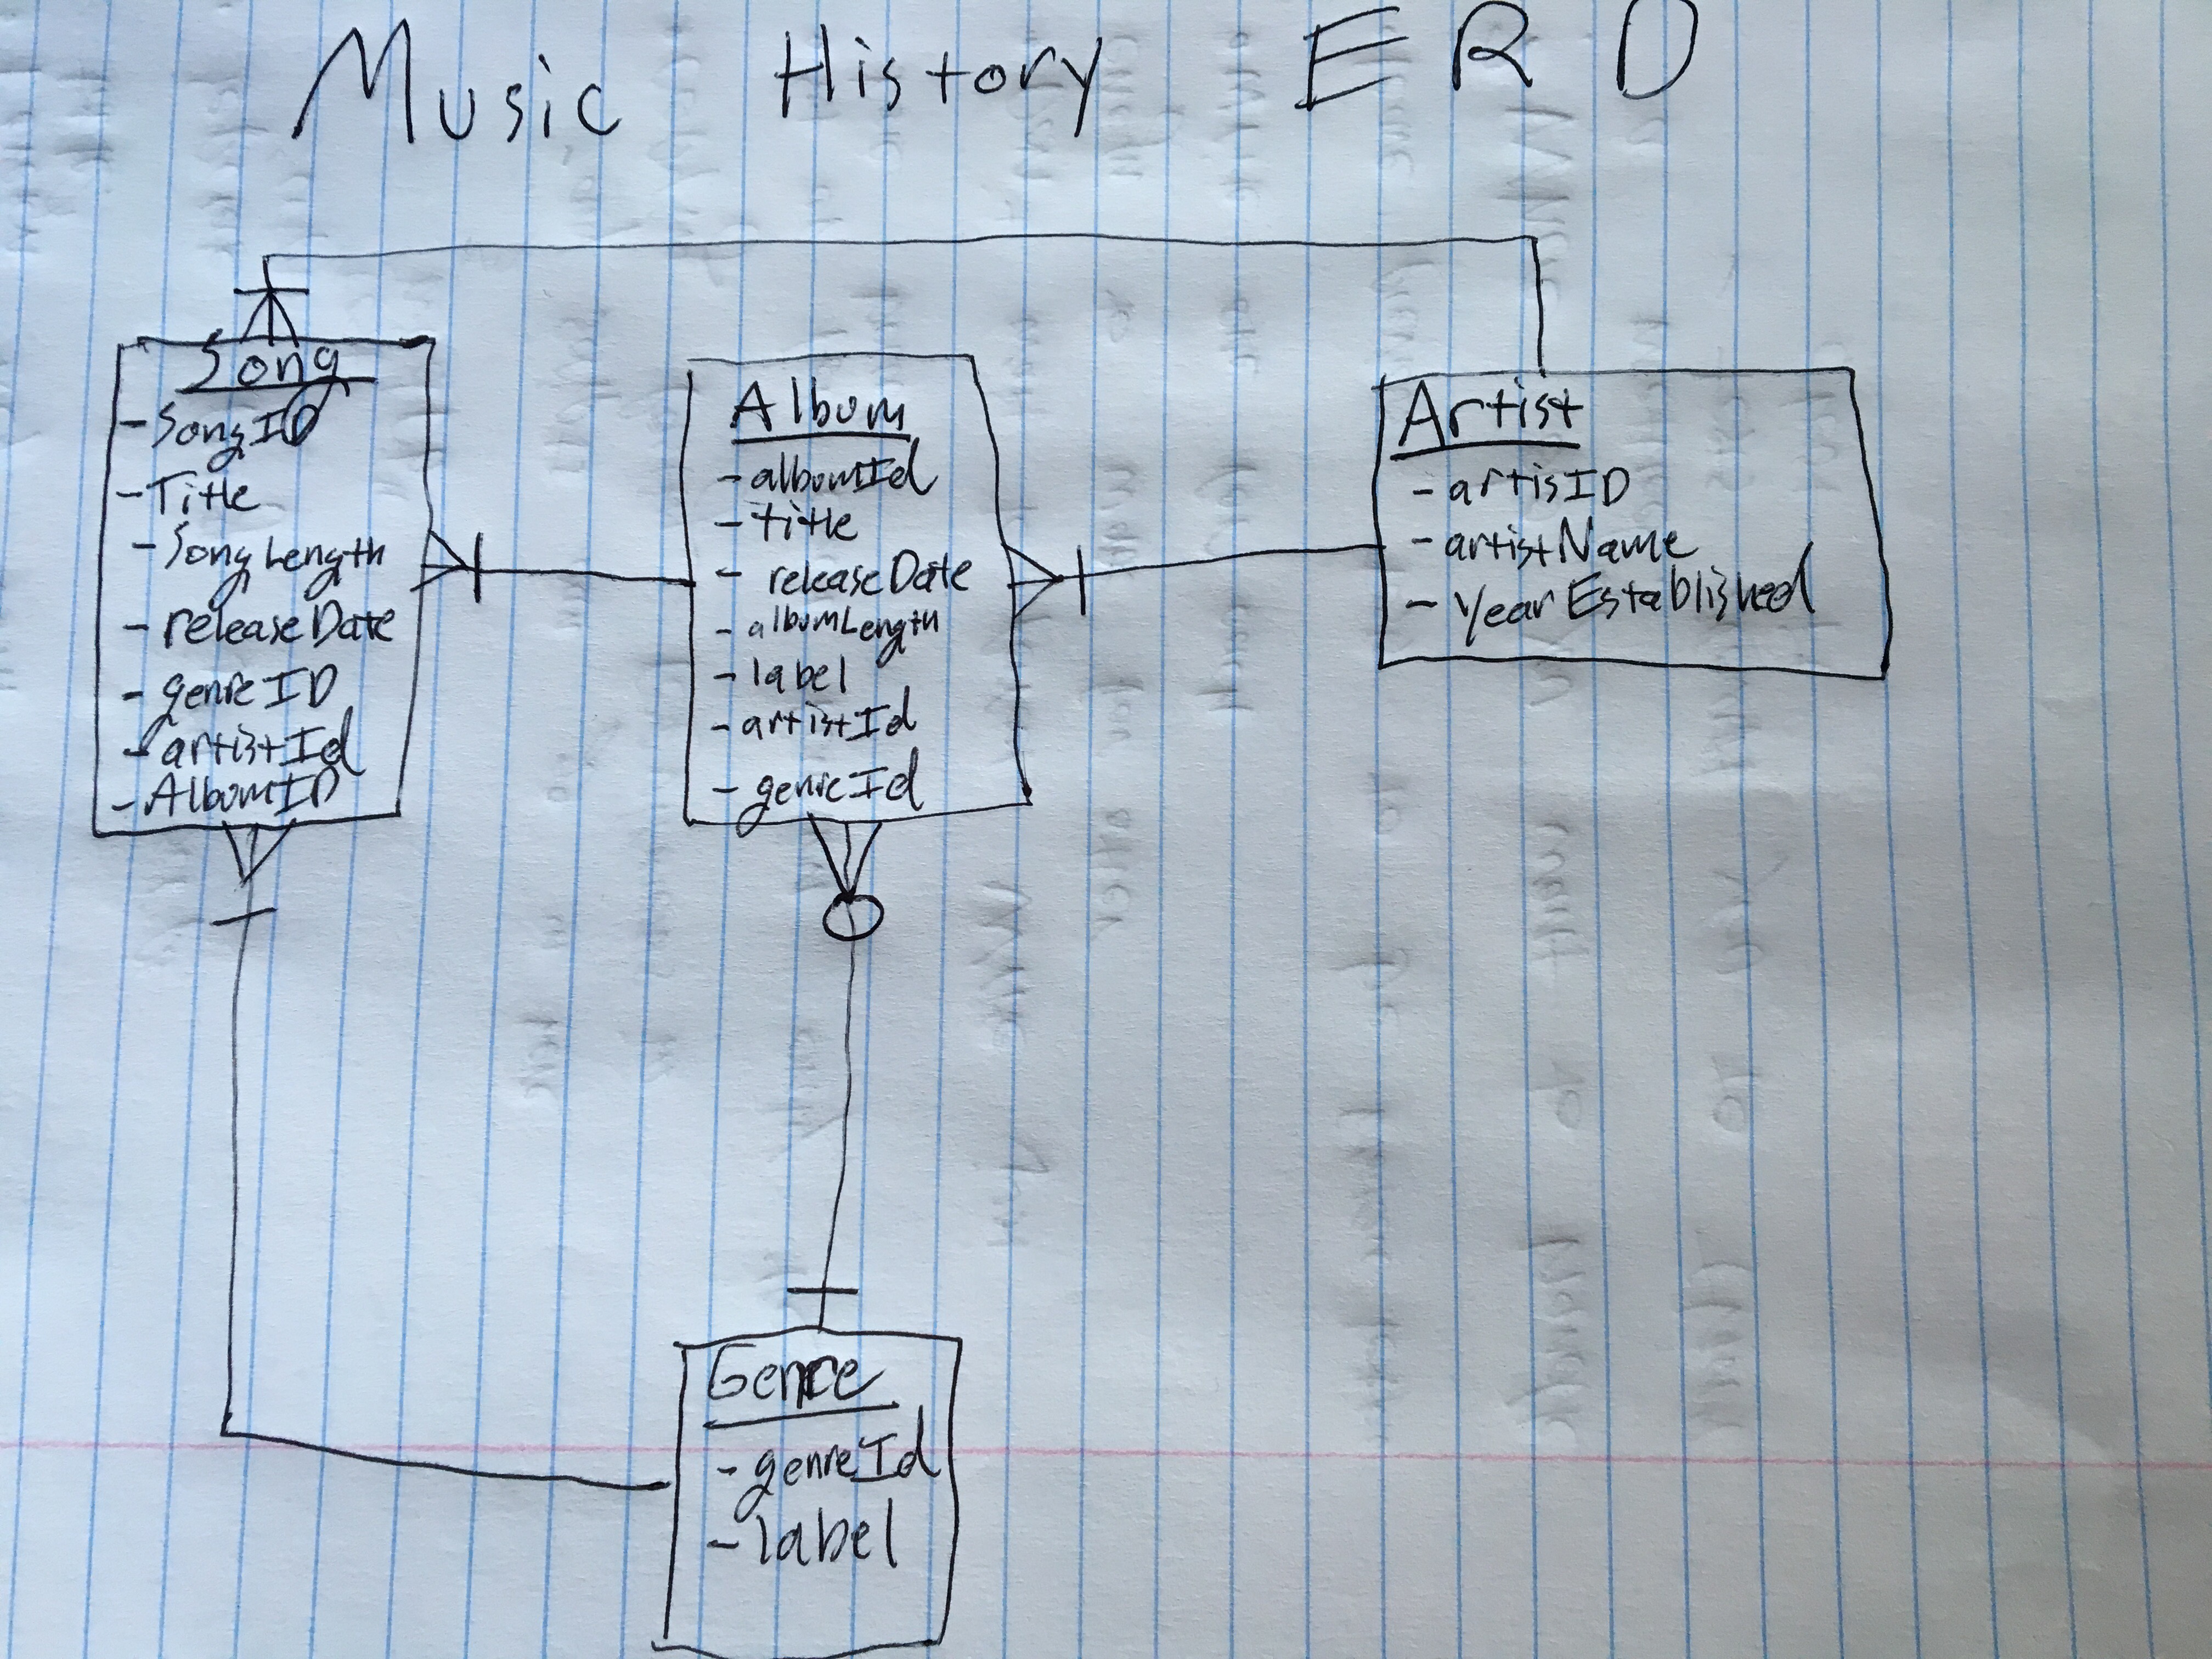 Music History ERD
Song
- SongID
- Title
- SongLength
- releaseDate
- genreID
- artistId
- AlbumID
Album
- albumId
- title
- releaseDate
- albumLength
- label
- artistId
- genreId
Artist
- artisID
- artistName
- YearEstablished
Genre
- genreId
- label